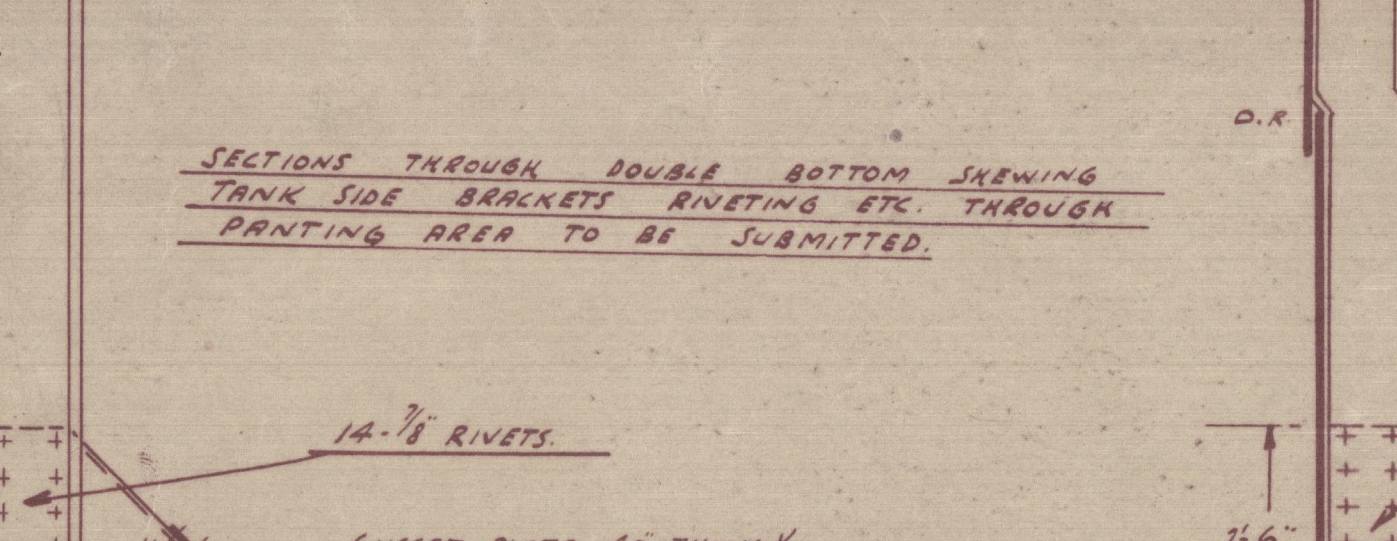 D.R.
SECTIONS THROUGH DOUBLE BOTTOM SHEWING
TANK SIDE BRACKETS RIVETING ETC. THROUGH
PANTING AREA TO BE SUBMITTED.
14-7/8" RIVETS.